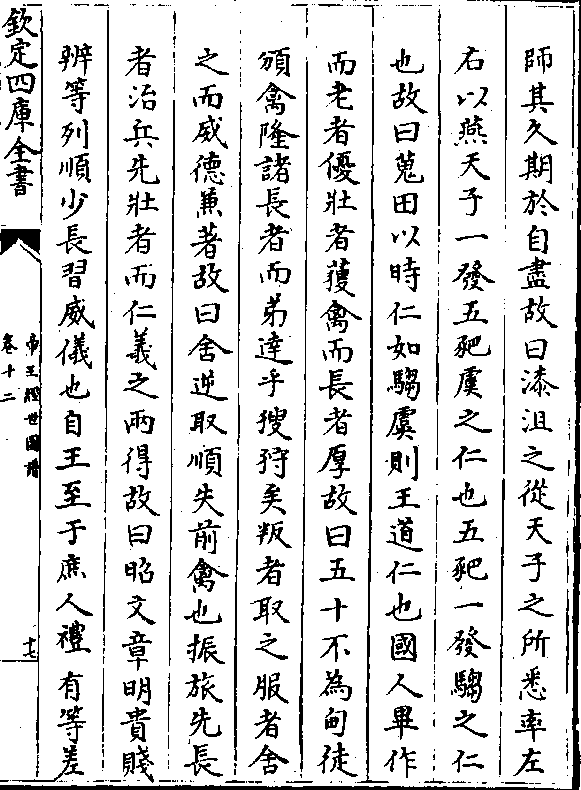 師其久期於自盡故曰漆沮之從天子之所悉率左
右以燕天子一發五豝虞之仁也五豝一發騶之仁
也故曰蒐田以時仁如騶虞則王道仁也國人畢作
而老者優壯者蒦禽而長者厚故曰五十不為甸徒
頒禽隆諸長者而弟達乎獀狩矣叛者取之服者舍
之而威德兼著故曰舍逆取順失前禽也振旅先長
者治兵先壯者而仁義之兩得故曰昭文章明貴賤
辨等列順少長習威儀也自王至于庶人禮有等差
欽定四庫全書
帝王經世圖譜
卷十二
十七